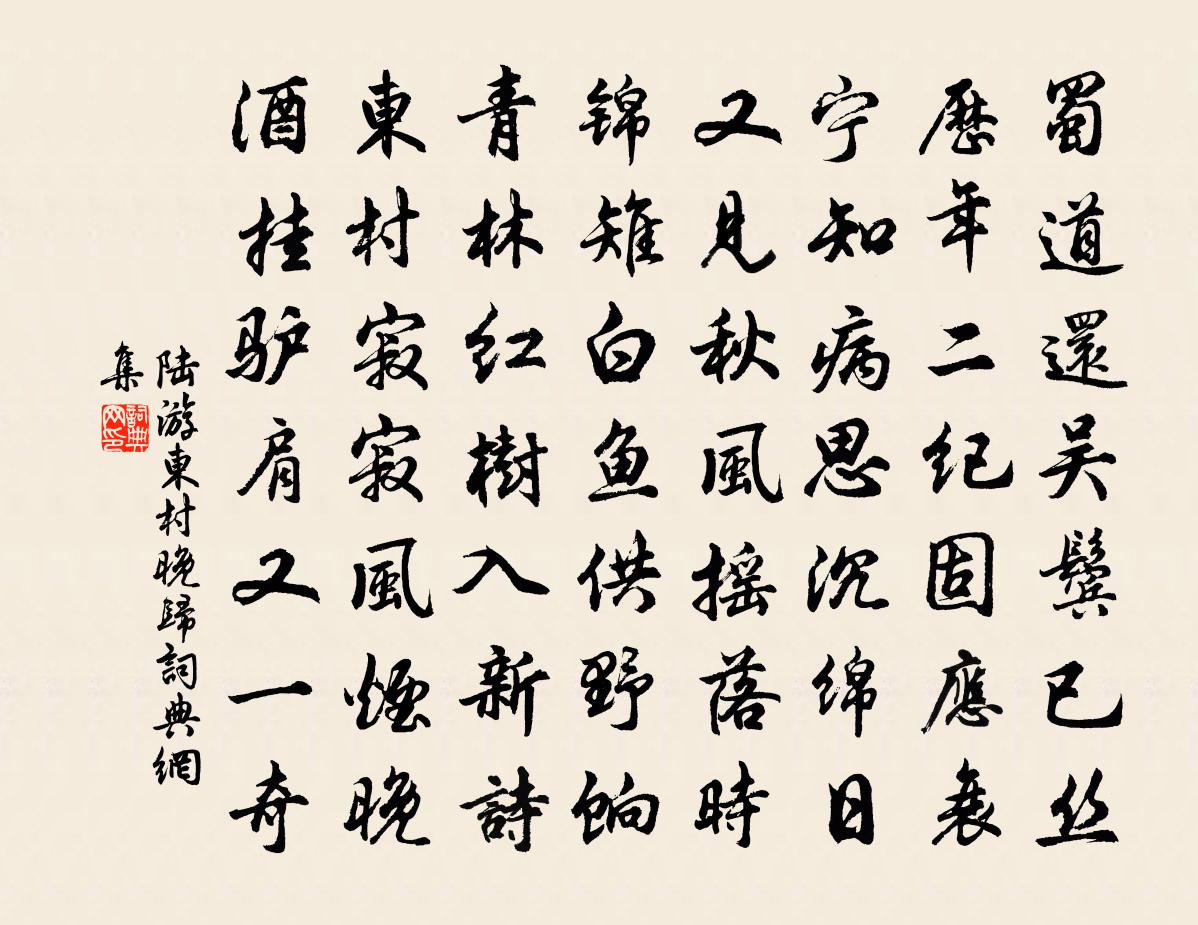 蜀道還吴鬓已丝
歷年二纪固應衰
宁知病思沉绵日
又見秋風摇落時
锦雉白鱼供野饷
青林红樹入新詩
東村寂寂風煙晚
酒挂驴肩又一奇
陆游東村晚歸詞典網
集
詞典网印